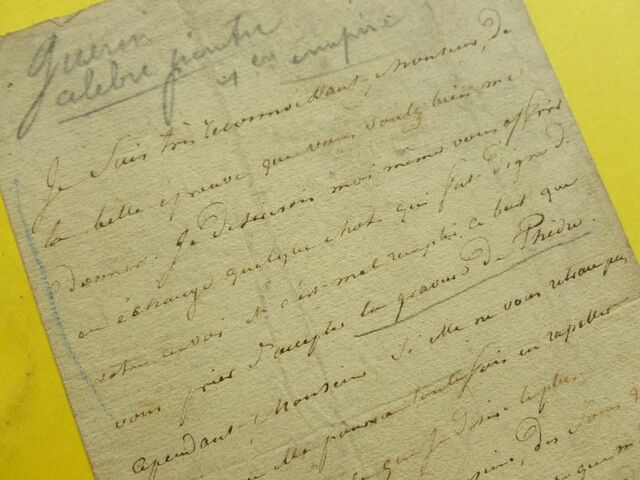 guerin
célèbre peintre
en empire
Je Suis très reconnoissant, Monsieur, de
la belle épreuve que vous voulez bien me
donner. Je desirerois moi même vous offrir
en échange quelque chose qui fut digne d
votre envoi et c'est mal remplir ce but que
vous prier d'accepter la gravure de Phèdre.
cependant, Monsieur Si Elle ne vous
Elle pourra toutefois en rapeller
que je desire le plus.
des Soins